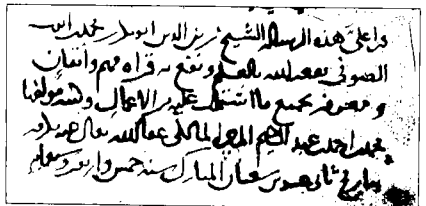 قرا علي هذه الرسالة الشيخ زين الدين ابو بكر محمد
الصوفي نفعه الله بالعلم ونفع به قراة فهم واتقان
ومعرفة بجميع ما اشتملت عليه من الاعمال وكتبه مولفها
محمد احمد عبد الرحيم المزي عفا الله تعالى عنه
بتاريخ ثاني شعبان المبارك سنة خمس واربعين وسبعمايه